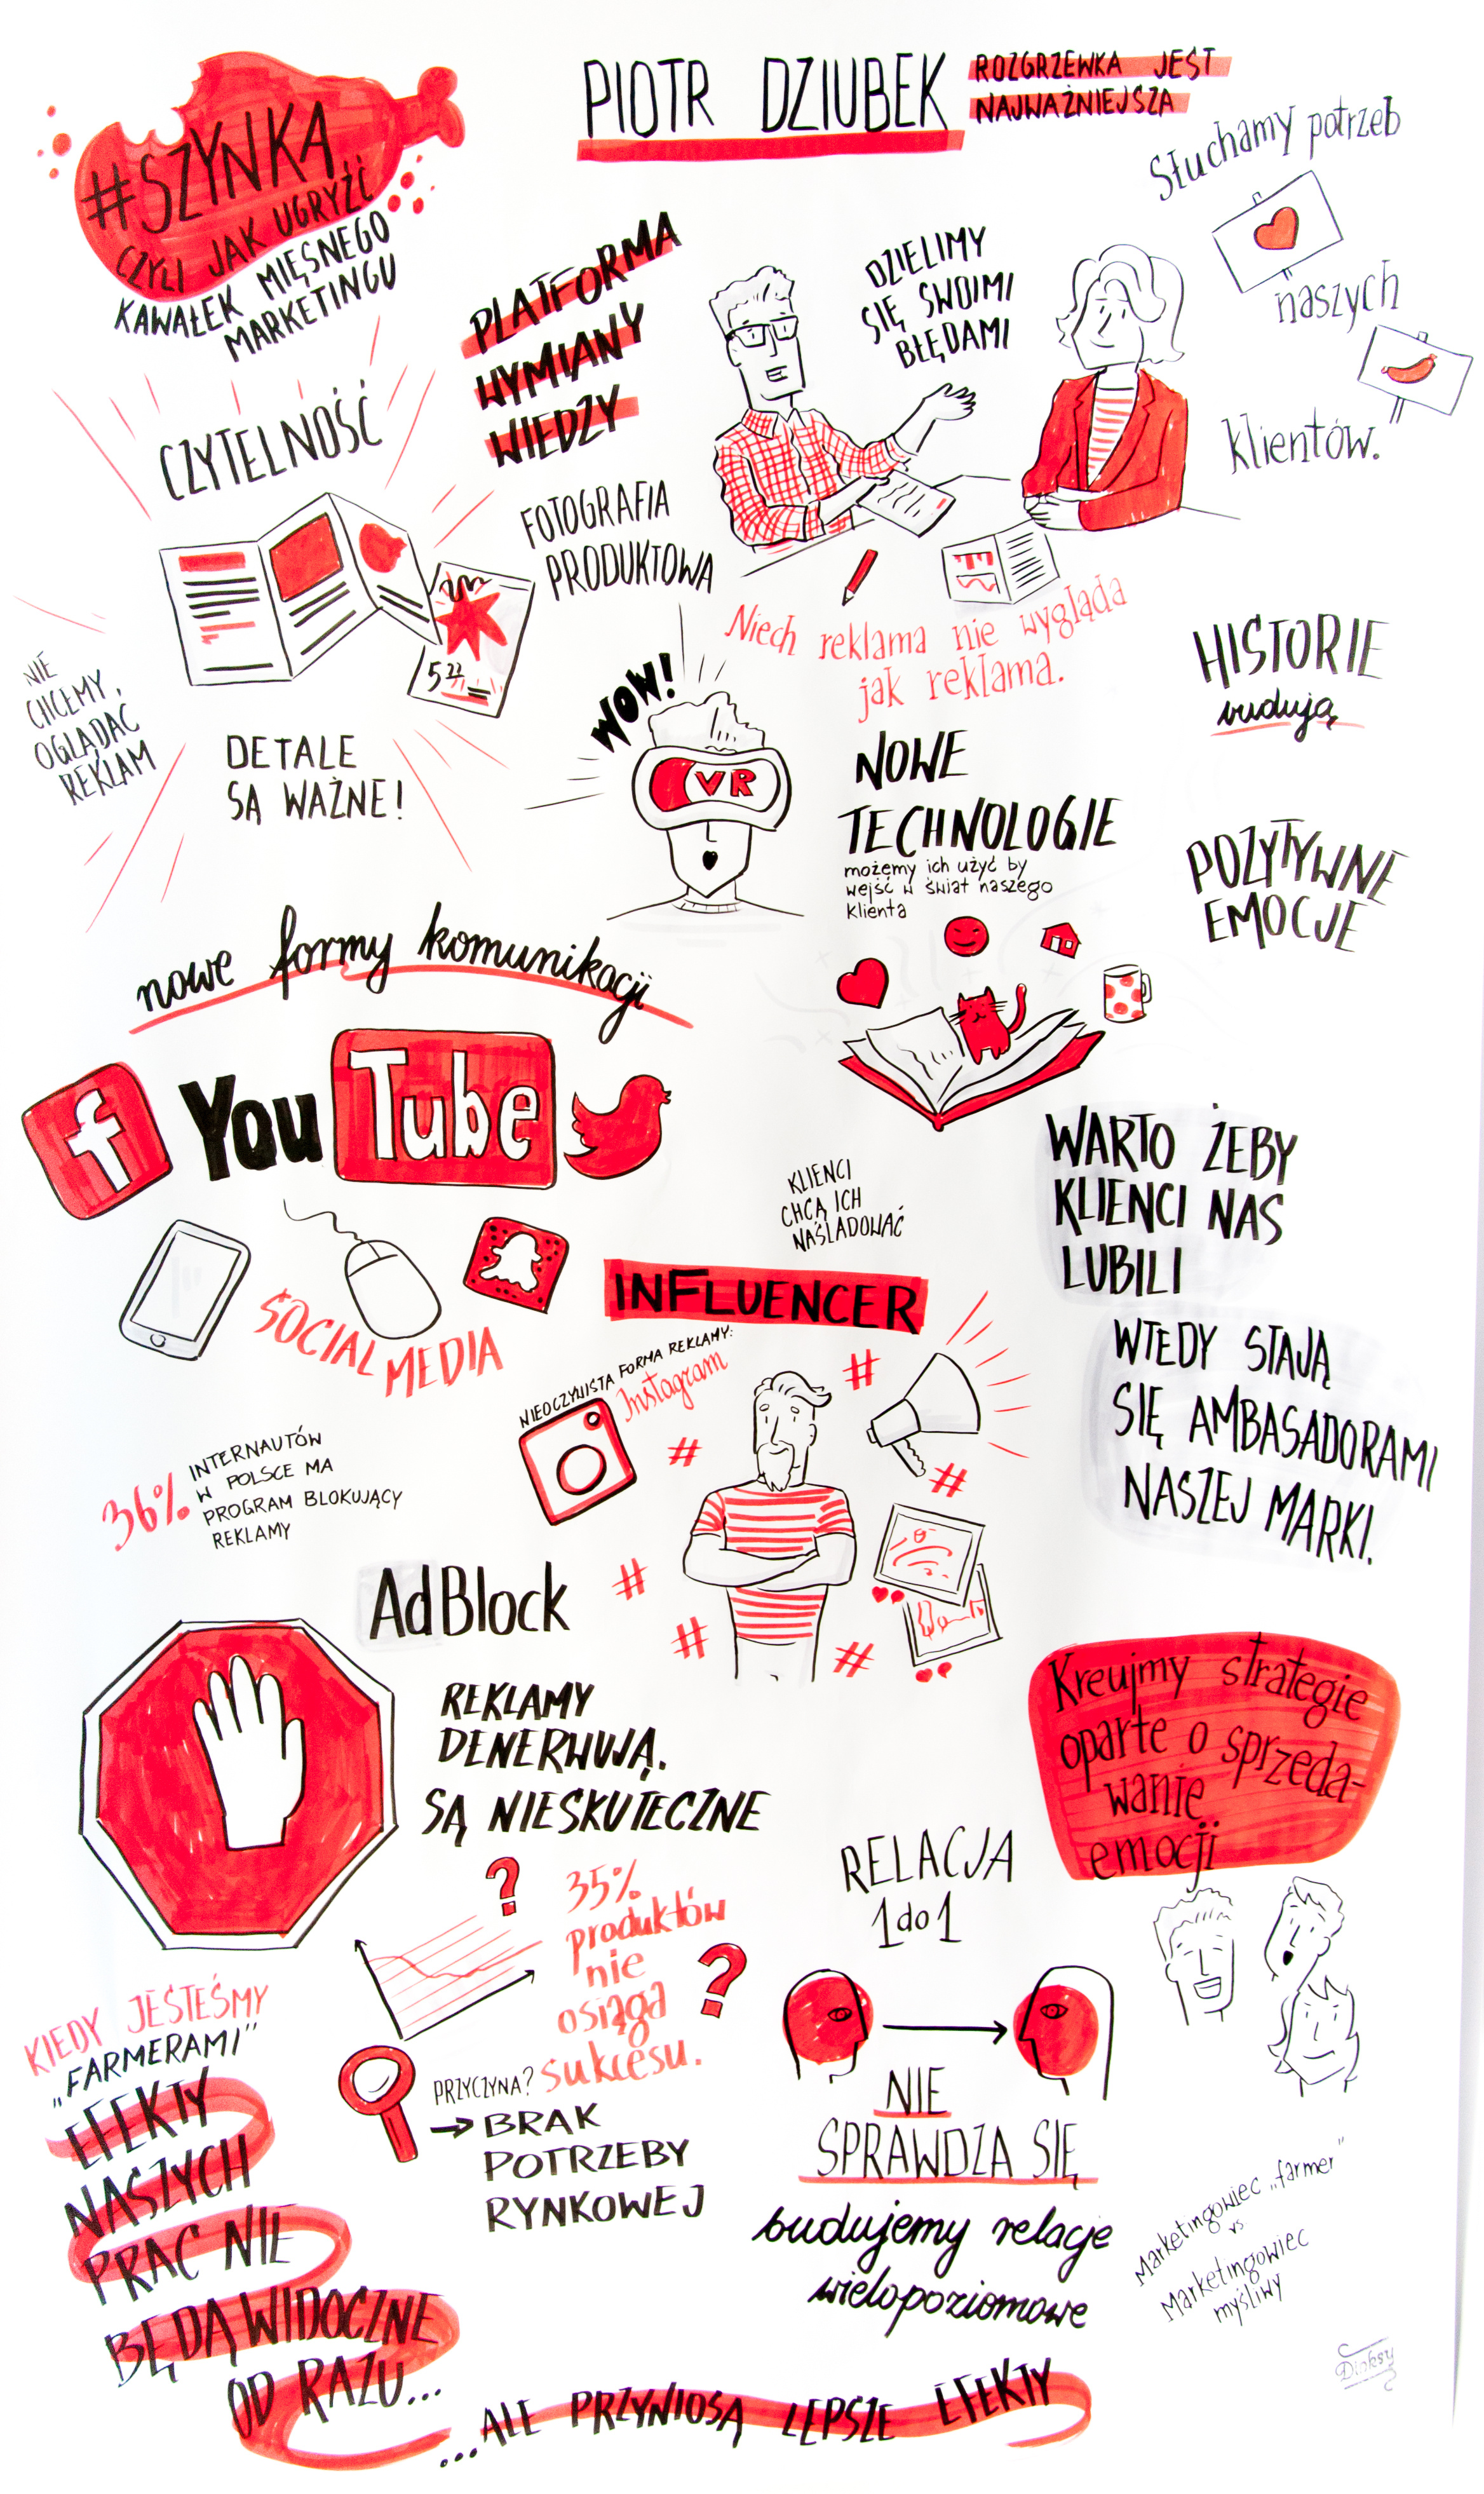 #SZYNKA
CZYLI JAK UGRYŹĆ
KAWAŁEK MIĘSNEGO
MARKETINGU
PIOTR DZIUBEK
ROZGRZEWKA JEST
NAJWAŻNIEJSZA
Słuchamy potrzeb
naszych
klientów.
PLATFORMA
WYMIANY
WIEDZY
DZIELIMY
SIĘ SWOIMI
BŁĘDAMI
CZYTELNOŚĆ
FOTOGRAFIA
PRODUKTOWA
5 22
NIE
CHCEMY
OGLĄDAĆ
REKLAM
DETALE
SĄ WAŻNE!
Niech reklama nie wygląda
jak reklama.
HISTORIE
budują
POZYTYWNE
EMOCJE
WOW!
VR
NOWE
TECHNOLOGIE
możemy ich użyć by
wejść w świat naszego
klienta
nowe formy komunikacji
f
YouTube
SOCIAL MEDIA
KLIENCI
CHCĄ ICH
NAŚLADOWAĆ
INFLUENCER
NIEOCZYWISTA FORMA REKLAMY:
Instagram
#
#
#
#
#
#
WARTO ŻEBY
KLIENCI NAS
LUBILI
WTEDY STAJĄ
SIĘ AMBASADORAMI
NASZEJ MARKI.
36% INTERNAUTÓW
W POLSCE MA
PROGRAM BLOKUJĄCY
REKLAMY
AdBlock
REKLAMY
DENERWUJĄ.
SĄ NIESKUTECZNE
Kreujmy strategie
oparte o sprzeda-
wanie
emocji
?
35%
produktów
nie
osiąga
sukcesu.
?
PRZYCZYNA?
→ BRAK
POTRZEBY
RYNKOWEJ
RELACJA
1 do 1
NIE
SPRAWDZA SIĘ
budujemy relacje
wielopoziomowe
Marketingowiec „farmer"
vs
Marketingowiec
myśliwy
KIEDY JESTEŚMY
„FARMERAMI"
EFEKTY
NASZYCH
PRAC NIE
BĘDĄ WIDOCZNE
OD RAZU...
...ALE PRZYNIOSĄ LEPSZE EFEKTY
Dinksy